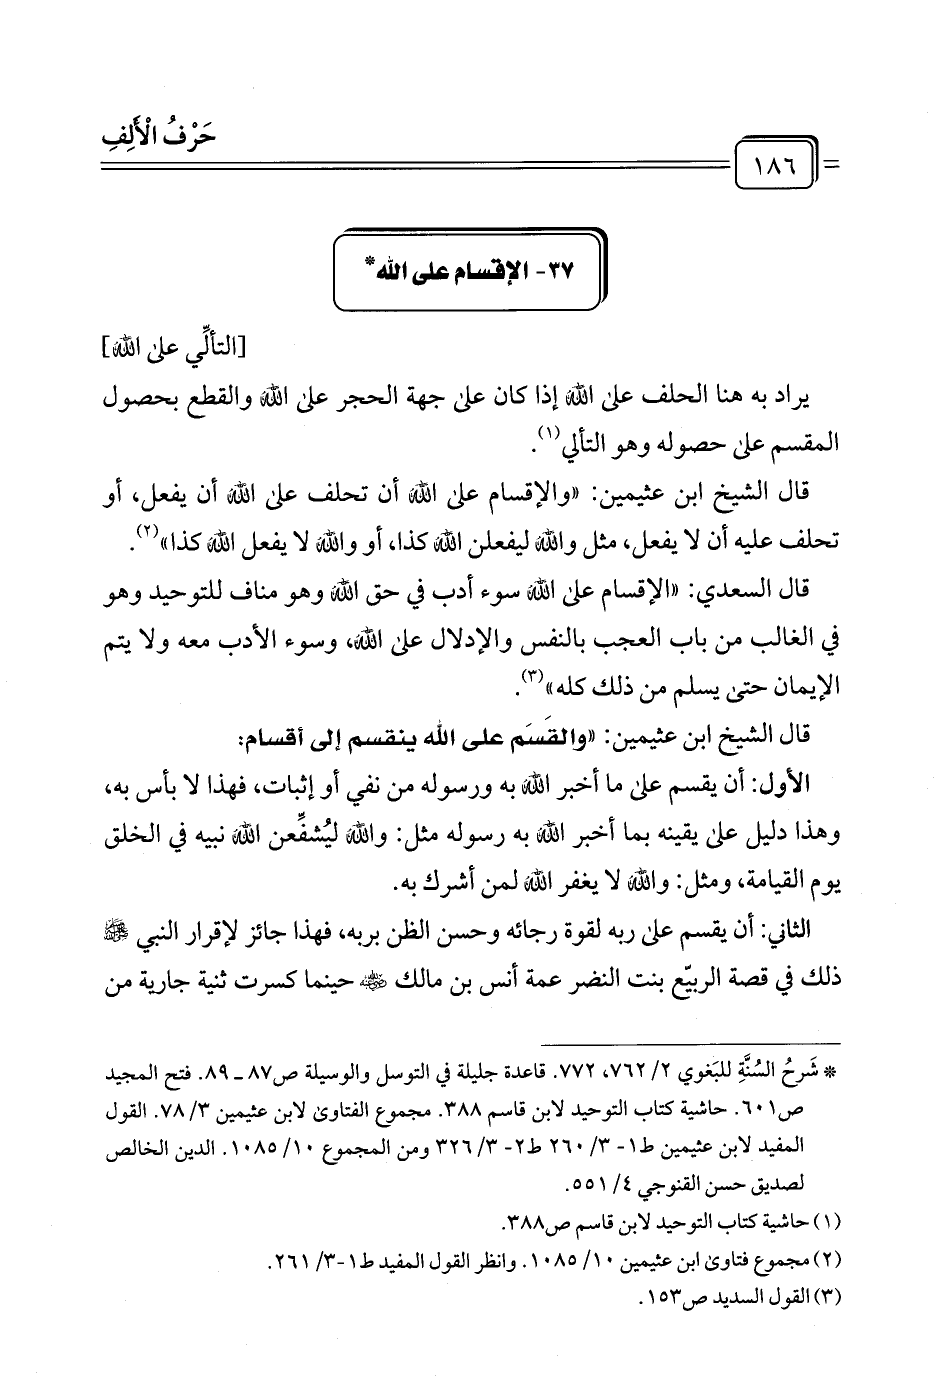 حَرْفُ الْأَلِفِ
١٨٦
٣٧- الإقسام على الله*
[التألِّي على الله]
يراد به هنا الحلف على الله إذا كان على جهة الحجر على الله والقطع بحصول
المقسم على حصوله وهو التألي(١).
قال الشيخ ابن عثيمين: «والإقسام على الله أن تحلف على الله أن يفعل، أو
تحلف عليه أن لا يفعل، مثل والله ليفعلن الله كذا، أو والله لا يفعل الله كذا»(٢).
قال السعدي: «الإقسام على الله سوء أدب في حق الله وهو مناف للتوحيد وهو
في الغالب من باب العجب بالنفس والإدلال على الله، وسوء الأدب معه ولا يتم
الإيمان حتى يسلم من ذلك كله»(٣).
قال الشيخ ابن عثيمين: «والقَسَم على الله ينقسم إلى أقسام:
الأول: أن يقسم على ما أخبر الله به ورسوله من نفي أو إثبات، فهذا لا بأس به،
وهذا دليل على يقينه بما أخبر الله به رسوله مثل: والله ليُشفِّعن الله نبيه في الخلق
يوم القيامة، ومثل: والله لا يغفر الله لمن أشرك به.
الثاني: أن يقسم على ربه لقوة رجائه وحسن الظن بربه، فهذا جائز لإقرار النبي ﷺ
ذلك في قصة الربيّع بنت النضر عمة أنس بن مالك حينما كسرت ثنية جارية من
* شَرحُ السُنَّةِ للبَغوي ٢/ ٧٦٢، ٧٧٢. قاعدة جليلة في التوسل والوسيلة ص٨٧ ـ ٨٩. فتح المجيد
ص٦٠١. حاشية كتاب التوحيد لابن قاسم ٣٨٨. مجموع الفتاوى لابن عثيمين ٣/ ٧٨. القول
المفيد لابن عثيمين ط١- ٣/ ٢٦٠ ط٢- ٣/ ٣٢٦ ومن المجموع ١٠/ ١٠٨٥. الدين الخالص
لصديق حسن القنوجي ٤/ ٥٥١.
(١) حاشية كتاب التوحيد لابن قاسم ص٣٨٨.
(٢) مجموع فتاوى ابن عثيمين ١٠/ ١٠٨٥. وانظر القول المفيد ط١-٣/ ٢٦١.
(٣) القول السديد ص١٥٣.